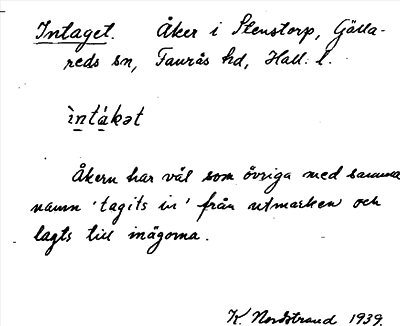 Intaget. Åker i Stenstorp, Gälla-
reds sn, Faurås hd, Hall. l.
ìntákət
Åkern har väl som övriga med samma
namn 'tagits in' från utmarken och
lagts till inägorna.
K. Nordstrand 1939.